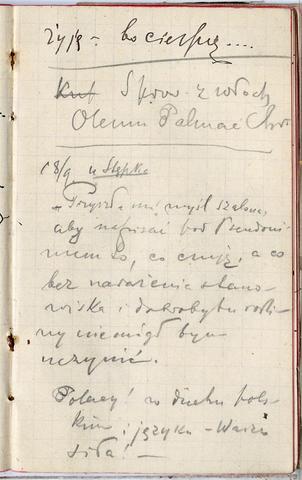 żyję - bo cierpię....
Spraw. z włoch
Oleum Palmae Chr.
18/9 u Stępka
- Przyszła mi myśl szalona,
aby napisać pod pseudoni-
mem to, co czuję, a co
bez narażenia stano-
wiska i dobrobytu rodzi-
ny nie mógł bym
uczynić.
Polacy! w duchu pols-
kim i języku - Wasza
siła! -